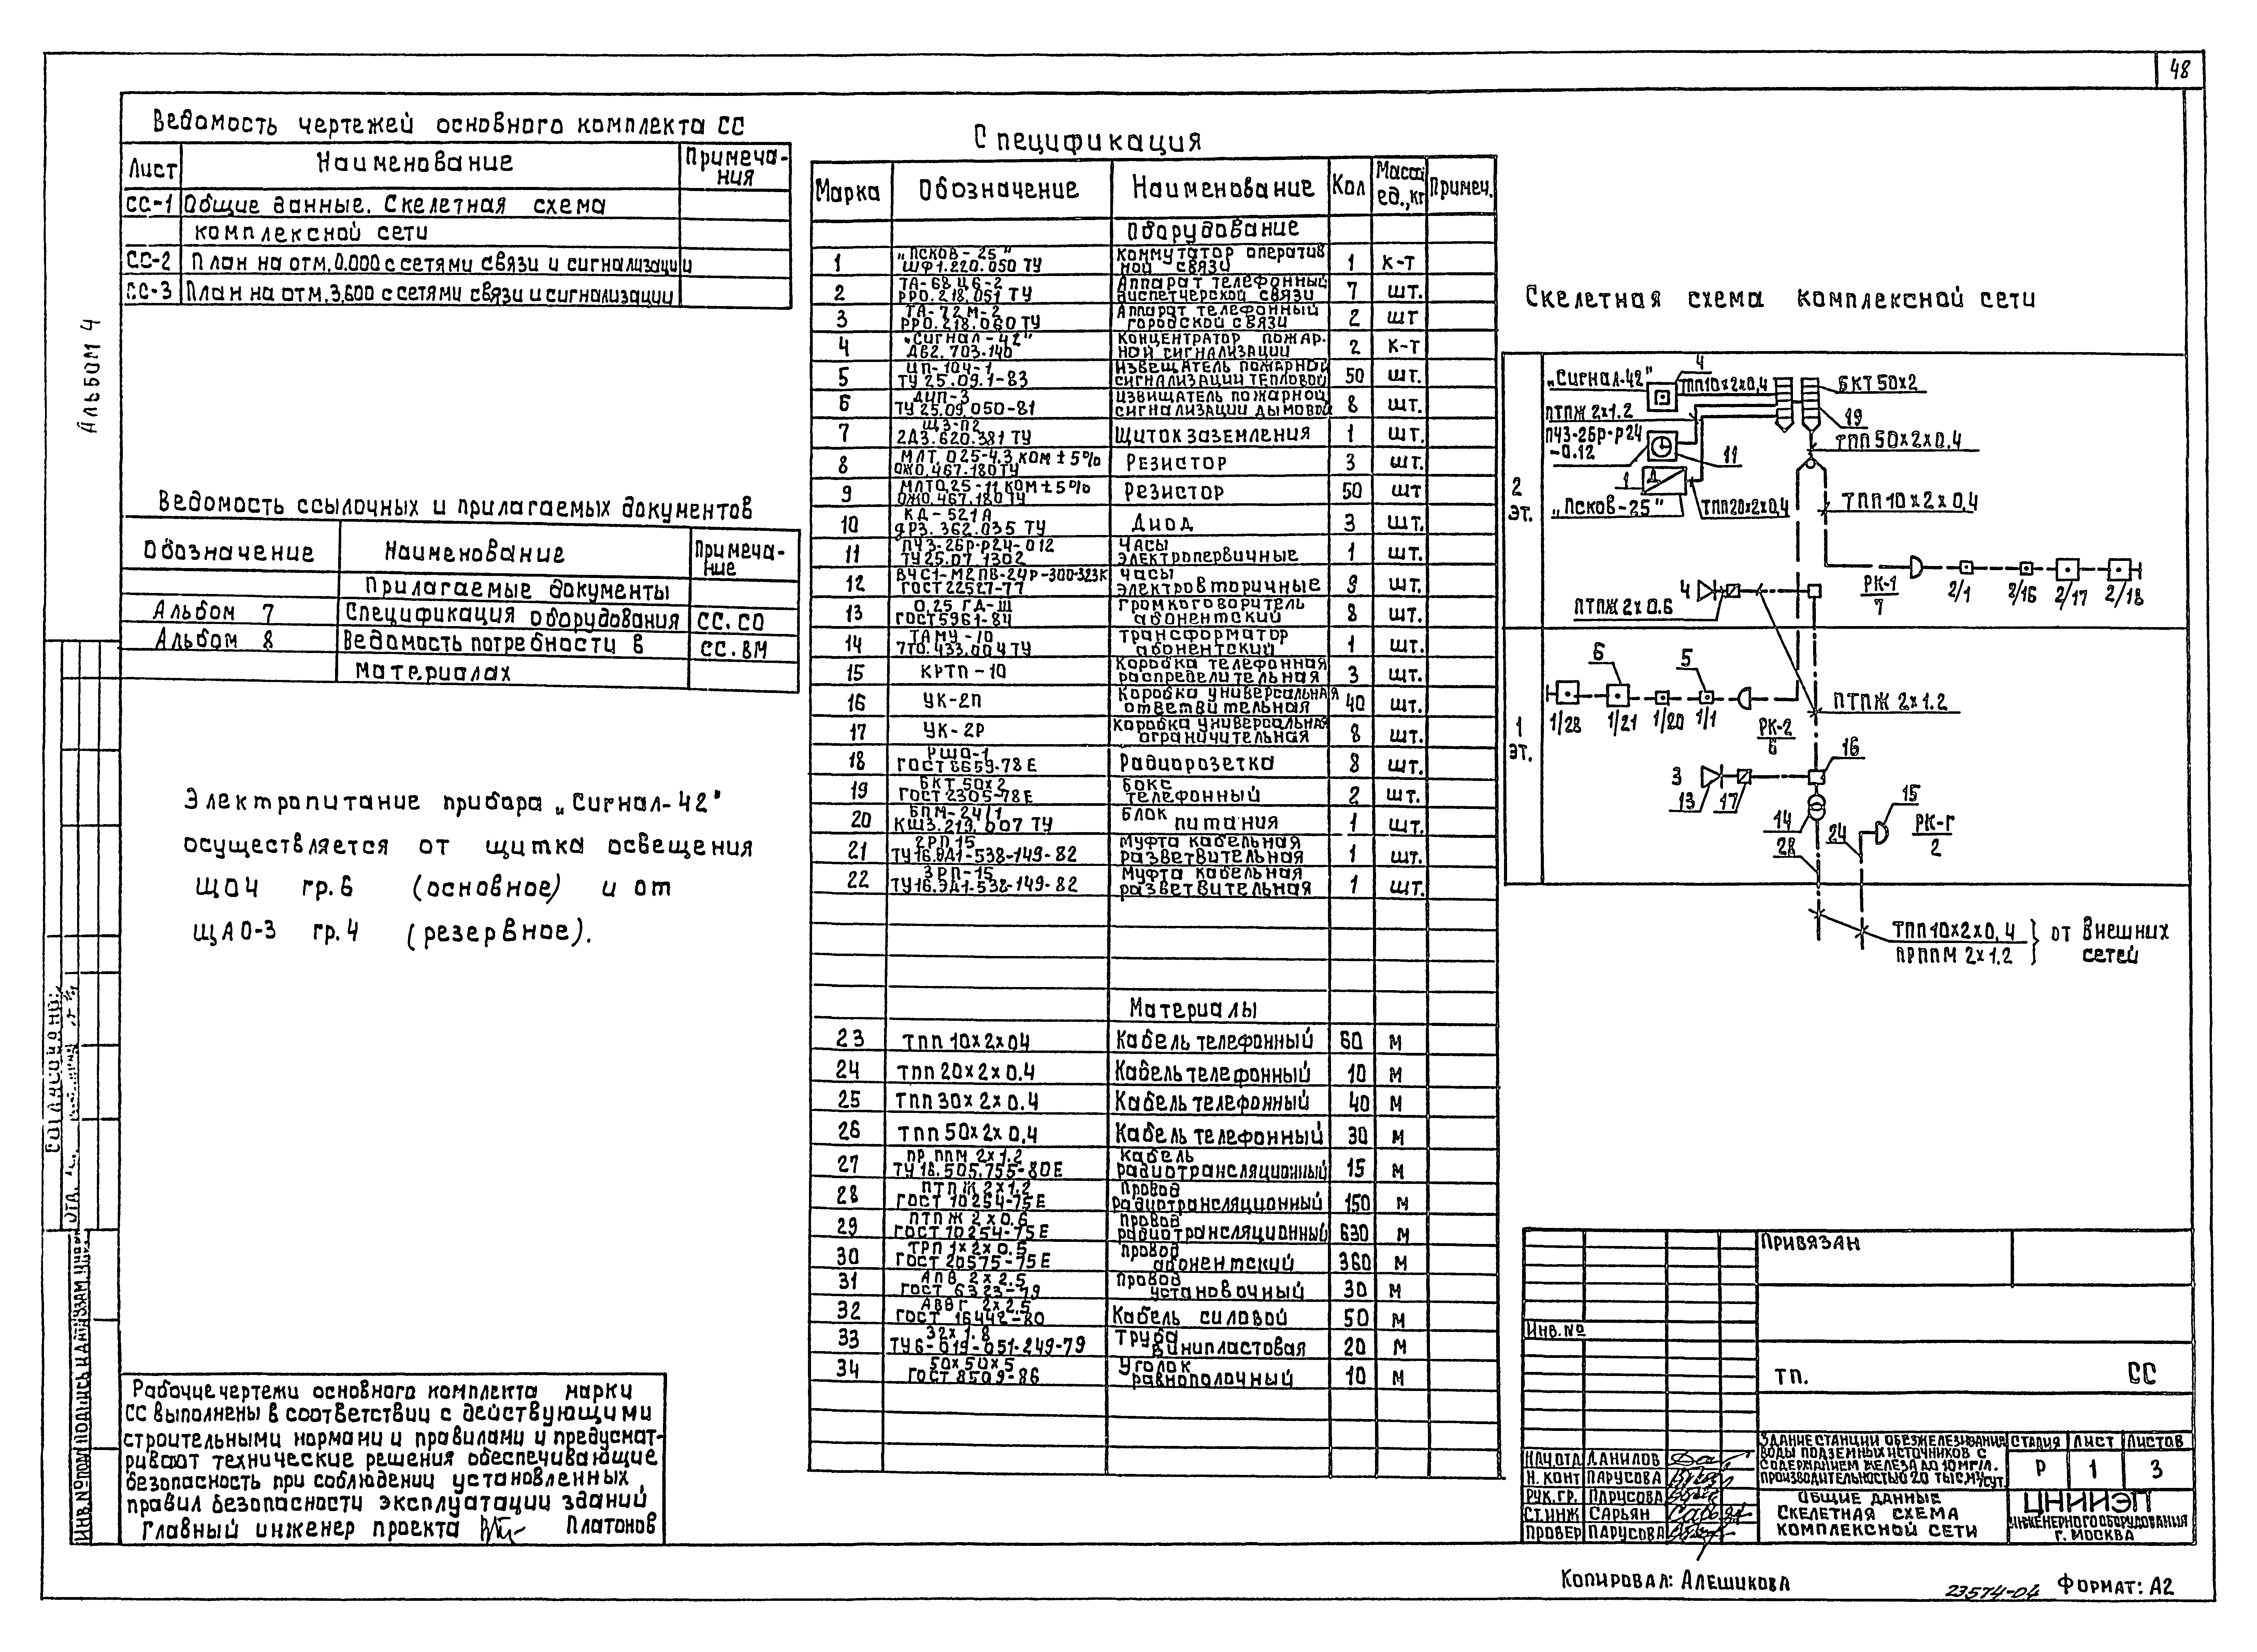 48
Альбом 4
Ведомость чертежей основного комплекта СС
Лист Наименование Примеча-
ния
СС-1 Общие данные. Скелетная схема
комплексной сети
СС-2 План на отм. 0.000 с сетями связи и сигнализации
СС-3 План на отм. 3,600 с сетями связи и сигнализации
Ведомость ссылочных и прилагаемых документов
Обозначение Наименование Примеча-
ние
Прилагаемые документы
Альбом 7 Спецификация оборудования СС.СО
Альбом 8 Ведомость потребности в СС.ВМ
материалах
Электропитание прибора „Сигнал-42"
осуществляется от щитка освещения
ЩО4 гр.6 (основное) и от
ЩАО-3 гр.4 (резервное).
Рабочие чертежи основного комплекта марки
СС выполнены в соответствии с действующими
строительными нормами и правилами и предусмат-
ривают технические решения обеспечивающие
безопасность при соблюдении установленных
правил безопасности эксплуатации зданий
Главный инженер проекта Платонов
Спецификация
Марка Обозначение Наименование Кол Масса ед.,кг Примеч.
Оборудование
1 „Псков-25" ШФ1.220.050 ТУ Коммутатор оператив ной связи 1 к-т
2 ТА-68 ЦБ-2 РРО.218.051 ТУ Аппарат телефонный диспетчерской связи 7 шт.
3 ТА-72М-2 РРО.218.060 ТУ Аппарат телефонный городской связи 2 шт
4 „Сигнал-42" ДВ2.703.140 Концентратор пожар- ной сигнализации 2 к-т
5 ИП-104-1 ТУ 25.09.1-83 Извещатель пожарной сигнализации тепловой 50 шт.
6 ДИП-3 ТУ 25.09.050-81 Извищатель пожарной сигнализации дымовой 8 шт.
7 ЩЗ-П2 2ДЗ.620.381 ТУ Щиток заземления 1 шт.
8 МЛТ 0,25-4.3 ком ± 5% ОЖО.467.180ТУ Резистор 3 шт.
9 МЛТ0,25-11 ком ± 5% ОЖО.467.180ТУ Резистор 50 шт
10 КД-521А дРЗ.362.035 ТУ Диод 3 шт.
11 ПЧЗ-2БР-Р24-012 ТУ 25.07.1302 Часы электропервичные 1 шт.
12 ВЧС1-М2ПВ-24Р-300-323К ГОСТ 22527-77 Часы электровторичные 9 шт.
13 0,25 ГД-III ГОСТ 5961-84 Громкоговоритель абонентский 8 шт.
14 ТАМУ-10 7ТО.433.004ТУ Трансформатор абонентский 1 шт.
15 КРТП-10 Коробка телефонная распределительная 3 шт.
16 УК-2П Коробка универсальная ответвительная 40 шт.
17 УК-2Р Коробка универсальная ограничительная 8 шт.
18 РШО-1 ГОСТ 8659-78Е Радиорозетка 8 шт.
19 БКТ 50х2 ГОСТ 2305-78Е Бокс телефонный 2 шт.
20 БПМ-24/1 КШЗ.219.007 ТУ Блок питания 1 шт.
21 2РП15 ТУ16.ЭД1-538-149-82 Муфта кабельная разветвительная 1 шт.
22 3РП-15 ТУ16.ЭД1-538-149-82 Муфта кабельная разветвительная 1 шт.
Материалы
23 ТПП 10х2х04 Кабель телефонный 60 м
24 ТПП 20х2х0.4 Кабель телефонный 10 м
25 ТПП 30х2х0.4 Кабель телефонный 40 м
26 ТПП 50х2х0,4 Кабель телефонный 30 м
27 ПР ППМ 2х1.2 ТУ 16.505.755-80Е Кабель радиотрансляционный 15 м
28 ПТПЖ 2х1.2 ГОСТ 10254-75Е Провод радиотрансляционный 150 м
29 ПТПЖ 2х0.6 ГОСТ 10254-75Е Провод радиотрансляционный 630 м
30 ТРП 1х2х0.5 ГОСТ 20575-75Е Провод абонентский 360 м
31 АПВ 2х2.5 ГОСТ 6323-79 Провод установочный 30 м
32 АВВГ 2х2.5 ГОСТ 16442-80 Кабель силовой 50 м
33 32х1.8 ТУ6-019-051-249-79 Труба винипластовая 20 м
34 50х50х5 ГОСТ 8509-86 Уголок равнополочный 10 м
Скелетная схема комплексной сети
2 эт.
„Сигнал-42" 4 ТПП10х2х0,4 БКТ 50х2
ПТПЖ 2х1.2 19
ПЧЗ-2БР-Р24 -0.12 11 ТПП 50х2х0,4
1 Д
„Псков-25" ТПП20х2х0,4 ТПП 10х2х0,4
4 ПТПЖ 2х0.6 РК-1 7 2/1 2/16 2/17 2/18
1 эт.
6 5
1/28 1/21 1/20 1/1 РК-2 6 ПТПЖ 2х1.2
16
3 13 17 15
14 24 РК-Г 2
28
ТПП10х2х0,4 от внешних
ПРППМ 2х1.2 сетей
Привязан
Инв.№
ТП. СС
Нач.отд Данилов
Н.конт Парусова
Рук.гр. Парусова
Ст.инж Сарьян
Провер Парусова
Здание станции обезжелезивания
воды подземных источников с
содержанием железа до 10мг/л.
производительностью 20 тыс.м³/сут.
Стадия Лист Листов
Р 1 3
Общие данные
Скелетная схема
комплексной сети
ЦНИИЭП
инженерного оборудования
г. Москва
Согласовано:
Инв.№подл Подпись и дата Взам.инв.
Копировал: Алешикова
23574-04
Формат: А2